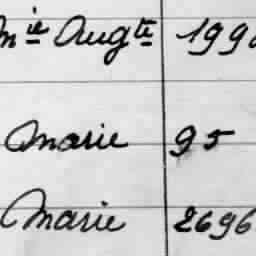 Mie Augte 199
Marie 95
Marie 2696